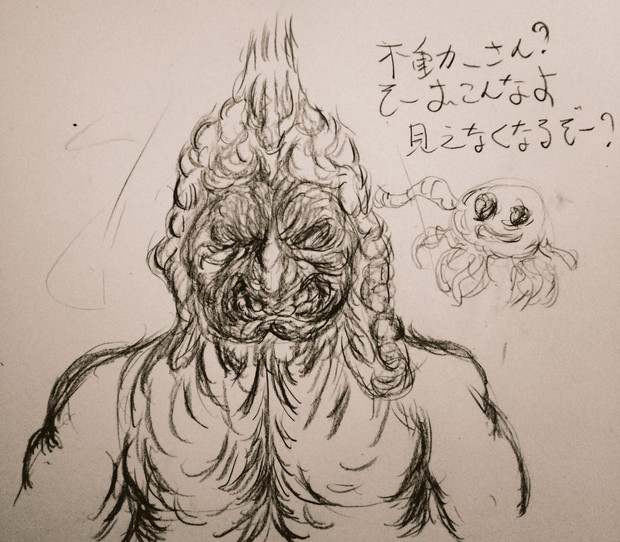 不動ーさん?
そーおこんなよ
見えなくなるぞー?